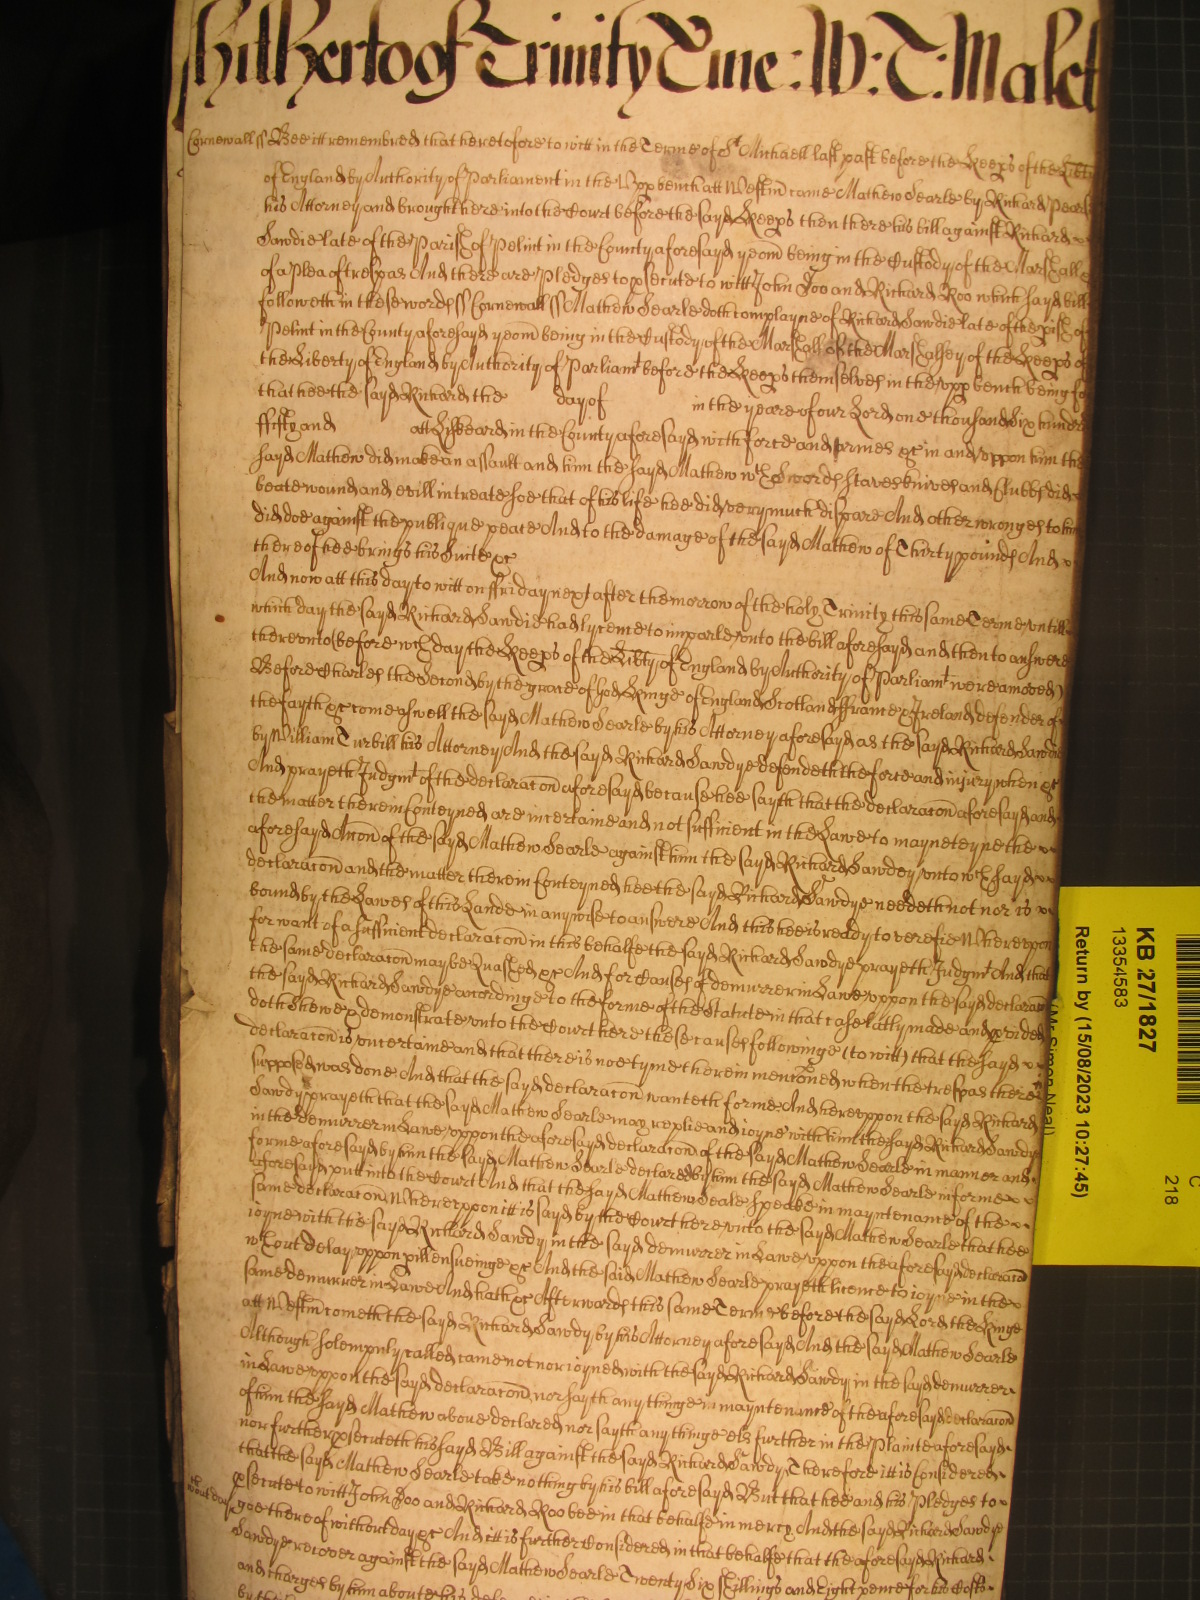 hitherto of Trinity Tme : W : T : Malet
Cornewall ss Bee itt remembred that heretofore to witt in the Terme of St Michaell last past before the Keeps of the Libty
of England by Authority of Parliament in the Vpp bench att Westm came Mathew Searle by Richard Pearse
his Attorney and brought here into the Court before the sayd Keeps then there his bill against Richard
Sawdie late of the Parish of Pelint in the County aforesayd yeom being in the Custody of the Marshall &
of a Plea of trespas And there are Pledges to psecute to witt John Doo and Richard Roo which sayd bill
followeth in these words ss Cornewall ss Mathew Searle doth complayne of Richard Sawdie late of the pish of
Pelint in the County aforesayd yeom being in the Custody of the Marshall of the Marshalsey of the Keeps of
the Liberty of England by Authority of Parliamt before the Keeps themselves in the vpp bench being for
that hee the sayd Richard the day of in the yeare of our Lord one thousand six hundred
ffifty and att Liskeard in the County aforesayd with force and armes &c in and vppon him the
sayd Mathew did make an assault and him the sayd Mathew wth Swords staves knives and Clubbs did
beate wound and evill intreate soe that of his life hee did very much dispare And other wronges to him
did doe against the publique peace And to the damage of the sayd Mathew of Thirty pounds And
thereof hee brings his Suite &c
And now att this day to witt on ffriday next after the morrow of the holy Trinity this same Terme vntill
which day the sayd Richard Sawdie had lycence to imparle vnto the bill aforesayd and then to answere
therevnto (before wch day the Keeps of the Libty of England by Authority of Parliamt were amoved)
Before Charles the Second by the grace of God Kinge of England Scotland ffrance & Ireland defender of
the fayth &c come aswell the sayd Mathew Searle by his Attorney aforesayd as the sayd Richard Sawdie
by William Turbill his Attorney And the sayd Richard Sawdye defendeth the force and injury when &c
And prayeth Judgmt of the declaracon aforesayd because hee sayth that the declaracon aforesayd and
the matter therein Conteyned are incertaine and not sufficient in the Lawe to mayneteyne the
aforesayd Accon of the sayd Mathew Searle against him the sayd Richard Sawdey vnto wch sayd
declaracon and the matter therein Conteyned hee the sayd Richard Sawdye needeth not nor is
bound by the Lawes of this Lande in any wise to answere And this hee is ready to verefie Wherevpon
for want of a sufficient declaracon in this behalfe the sayd Richard Sawdye prayeth Judgmt And that
the same declaracon may be Quashed &c And for Causes of demurrer in Lawe vppon the sayd declaracon
the sayd Richard Sawdye accordinge to the forme of the Statute in that case lattly made and pvided
doth shewe & demonstrate vnto the Court here these causes followinge (to witt) that the sayd
declaracon is vncertaine and that there is noe tyme therein menconed when the trespas therein
supposed was done And that the sayd declaracon wanteth forme And herevppon the sayd Richard
Sawdy prayeth that the sayd Mathew Searle may replie and ioyne with him the sayd Richard Sawdy
in the demurrer in Lawe vppon the aforesayd declaracon of the sayd Mathew Searle in manner and
forme aforesayd by him the sayd Mathew Searle declared by him the sayd Mathew Searle in forme
aforesayd putt into the Court And that the sayd Mathew Seale speake in mayntenance of the
same declaracon Wherevppon itt is sayd by the Court here vnto the sayd Mathew Searle that hee
ioyne with the sayd Richard Sawdy in the sayd demurrer in Lawe vppon the aforesayd declaracon
wthout delay vppon pill ensueinge &c And the said Mathew Searle prayeth licence to ioyne in the
same demurrer in Lawe And hath &c Afterwards this same Terme before the sayd Lord the Kinge
att Westm cometh the sayd Richard Sawdy by his Attorney aforesayd And the sayd Mathew Searle
Although solempnly called came not nor ioyned with the sayd Richard Sawdy in the sayd demurrer
in Lawe vppon the sayd declaracon nor sayth any thinge in mayntenance of the aforesayd declaracon
of him the sayd Mathew above declared nor sayth any thinge els further in the Plainte aforesayd
nor further psecuteth his sayd Bill against the sayd Richard Sawdy Therefore itt is Considered
that the sayd Mathew Searle take nothing by his bill aforesayd But that hee and his Pledges to
psecute to witt John Doo and Richard Roo bee in that behalfe in mercy And the sayd Richard Sawdye
goe thereof without day &c And itt is further Considered in that behalfe that the aforesayd Richard
Sawdye recover against the sayd Mathew Searle Twenty Six shillings and Eight pence for his Costs
and charges by him about his
by the
KB 27/1827
13354583
Return by (15/08/2023 10:27:45)
(Mr Simon Neal)
218